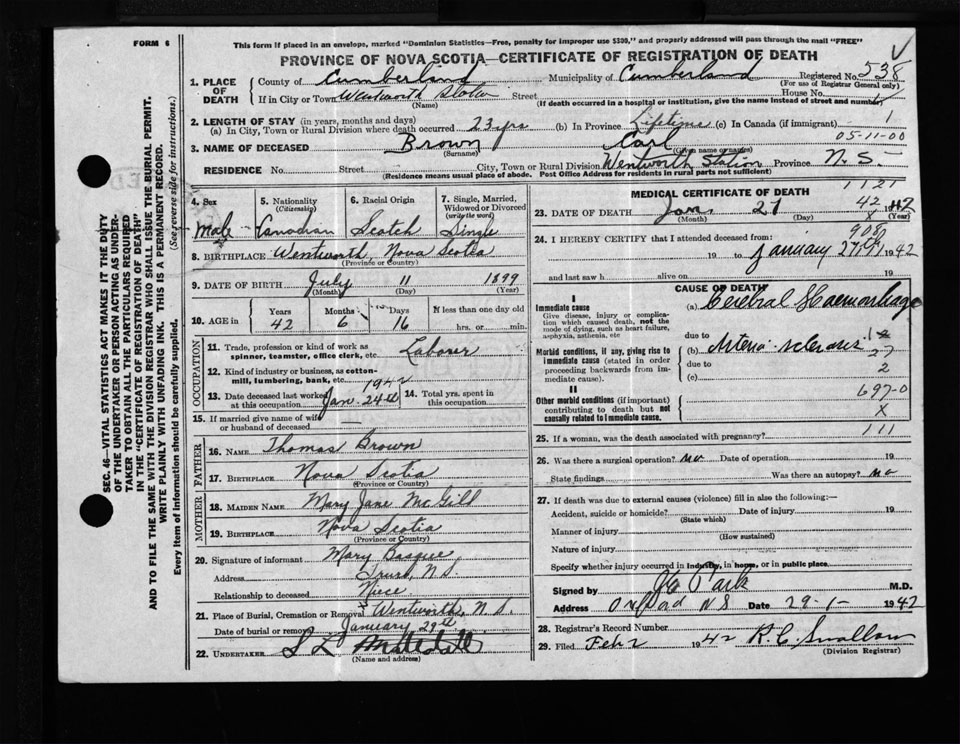 FORM 6
This form if placed in an envelope, marked "Dominion Statistics—Free, penalty for improper use $300," and properly addressed will pass through the mail "FREE"
PROVINCE OF NOVA SCOTIA—CERTIFICATE OF REGISTRATION OF DEATH
1. PLACE OF DEATH
County of Cumberland Municipality of Cumberland Registered No. 538
(For use of Registrar General only)
If in City or Town Wentworth Street House No.
(Name) (If death occurred in a hospital or institution, give the name instead of street and number)
2. LENGTH OF STAY (in years, months and days)
(a) In City, Town or Rural Division where death occurred 23 yrs (b) In Province Lifetime (c) In Canada (if immigrant) 1
05-11-00
3. NAME OF DECEASED Brown Carl
(Surname) (Given name or names)
RESIDENCE No. Street City, Town or Rural Division Wentworth Station Province N.S.
(Residence means usual place of abode. Post Office Address for residents in rural parts not sufficient)
4. Sex Male
5. Nationality (Citizenship) Canadian
6. Racial Origin Scotch
7. Single, Married, Widowed or Divorced (write the word) Single
8. BIRTHPLACE Wentworth, Nova Scotia
(Province or Country)
9. DATE OF BIRTH July 11 1899
(Month) (Day) (Year)
10. AGE in Years Months Days If less than one day old
42 6 16 hrs. or min.
OCCUPATION
11. Trade, profession or kind of work as spinner, teamster, office clerk, etc. Laborer
12. Kind of industry or business, as cotton-mill, lumbering, bank, etc.
13. Date deceased last worked at this occupation Jan. 24th 1942
14. Total yrs. spent in this occupation
15. If married give name of wife or husband of deceased —
FATHER
16. NAME Thomas Brown
17. BIRTHPLACE Nova Scotia
(Province or Country)
MOTHER
18. MAIDEN NAME Mary Jane McGill
19. BIRTHPLACE Nova Scotia
(Province or Country)
20. Signature of informant Mary
Address Truro, N.S.
Relationship to deceased Niece
21. Place of Burial, Cremation or Removal Wentworth, N.S.
Date of burial or removal January 29th
22. UNDERTAKER S L
(Name and address)
MEDICAL CERTIFICATE OF DEATH
1121
23. DATE OF DEATH Jan. 27 42 1942
(Month) (Day) X (Year)
908
24. I HEREBY CERTIFY that I attended deceased from:
19 to January 27th 1942
and last saw h alive on 19
CAUSE OF DEATH
I
Immediate cause
Give disease, injury or complication which caused death, not the mode of dying, such as heart failure, asphyxia, asthenia, etc
(a) Cerebral Haemorrhage
due to
Morbid conditions, if any, giving rise to immediate cause (stated in order proceeding backwards from immediate cause).
(b) Arterio-sclerosis
due to
(c)
2
II
Other morbid conditions (if important) contributing to death but not causally related to immediate cause.
697-0
X
25. If a woman, was the death associated with pregnancy? 111
26. Was there a surgical operation? no Date of operation 19
State findings Was there an autopsy? no
27. If death was due to external causes (violence) fill in also the following:—
Accident, suicide or homicide? Date of injury 19
(State which)
Manner of injury
(How sustained)
Nature of injury
Specify whether injury occurred in industry, in home, or in public place.
Signed by Park M.D.
Address Oxford NS Date 29-1- 1942
28. Registrar's Record Number
29. Filed Feb 2 1942 R. C. Swallow
(Division Registrar)
SEC. 46—VITAL STATISTICS ACT MAKES IT THE DUTY
OF THE UNDERTAKER OR PERSON ACTING AS UNDERTAKER TO OBTAIN ALL THE PARTICULARS REQUIRED
IN THE "CERTIFICATE OF REGISTRATION OF DEATH"
AND TO FILE THE SAME WITH THE DIVISION REGISTRAR WHO SHALL ISSUE THE BURIAL PERMIT.
WRITE PLAINLY WITH UNFADING INK. THIS IS A PERMANENT RECORD.
Every item of information should be carefully supplied. (See reverse side for instructions.)